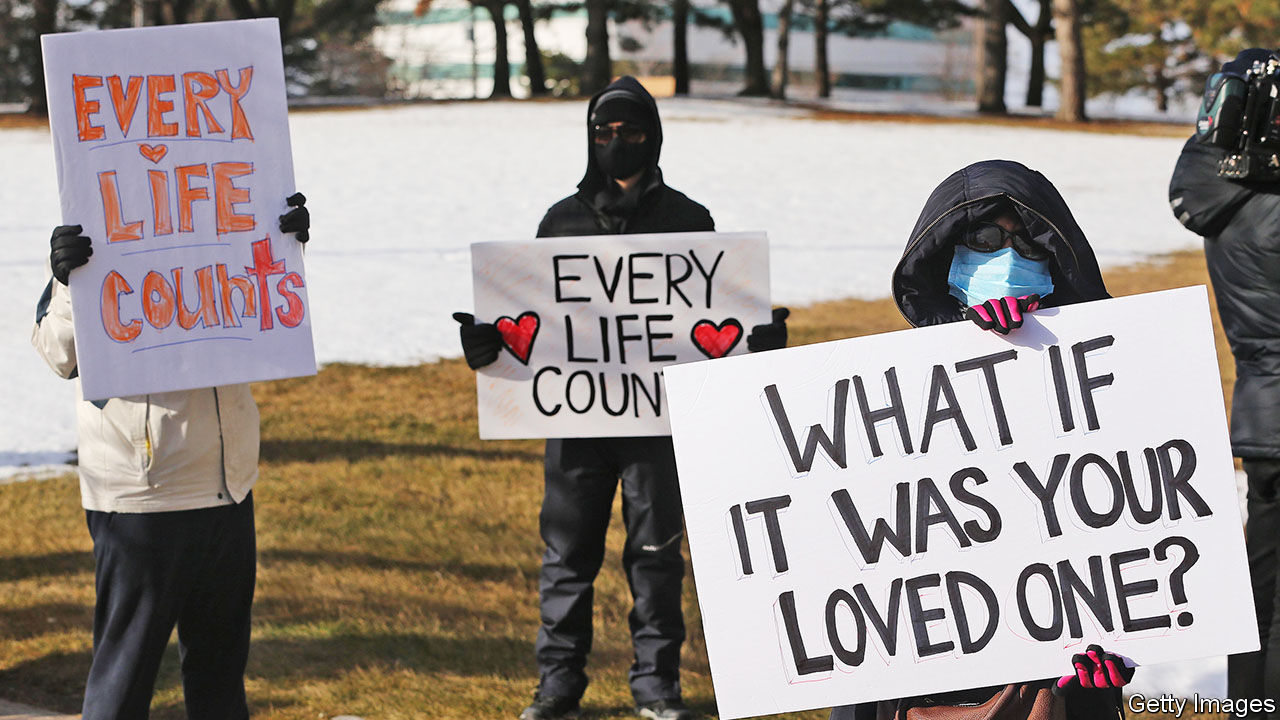 EVERY
LIFE
Counts
EVERY
LIFE
COUNT
WHAT IF
IT WAS YOUR
LOVED ONE?
Getty Images